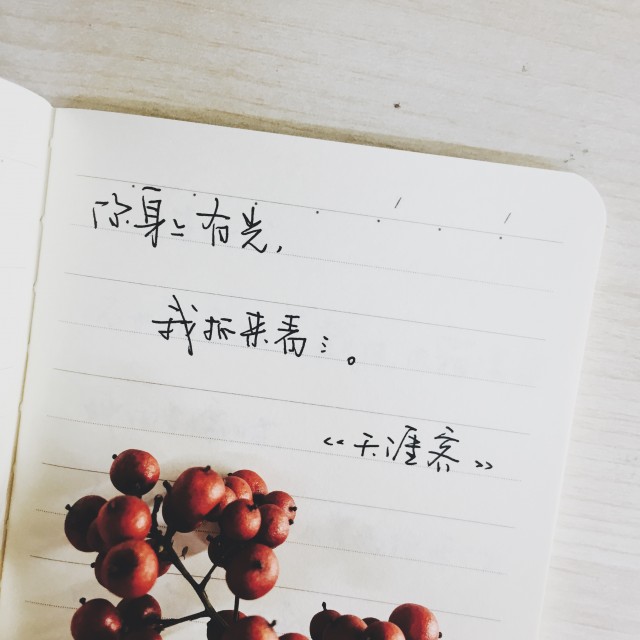 你身上有光，
我抓来看看。
《天涯客》